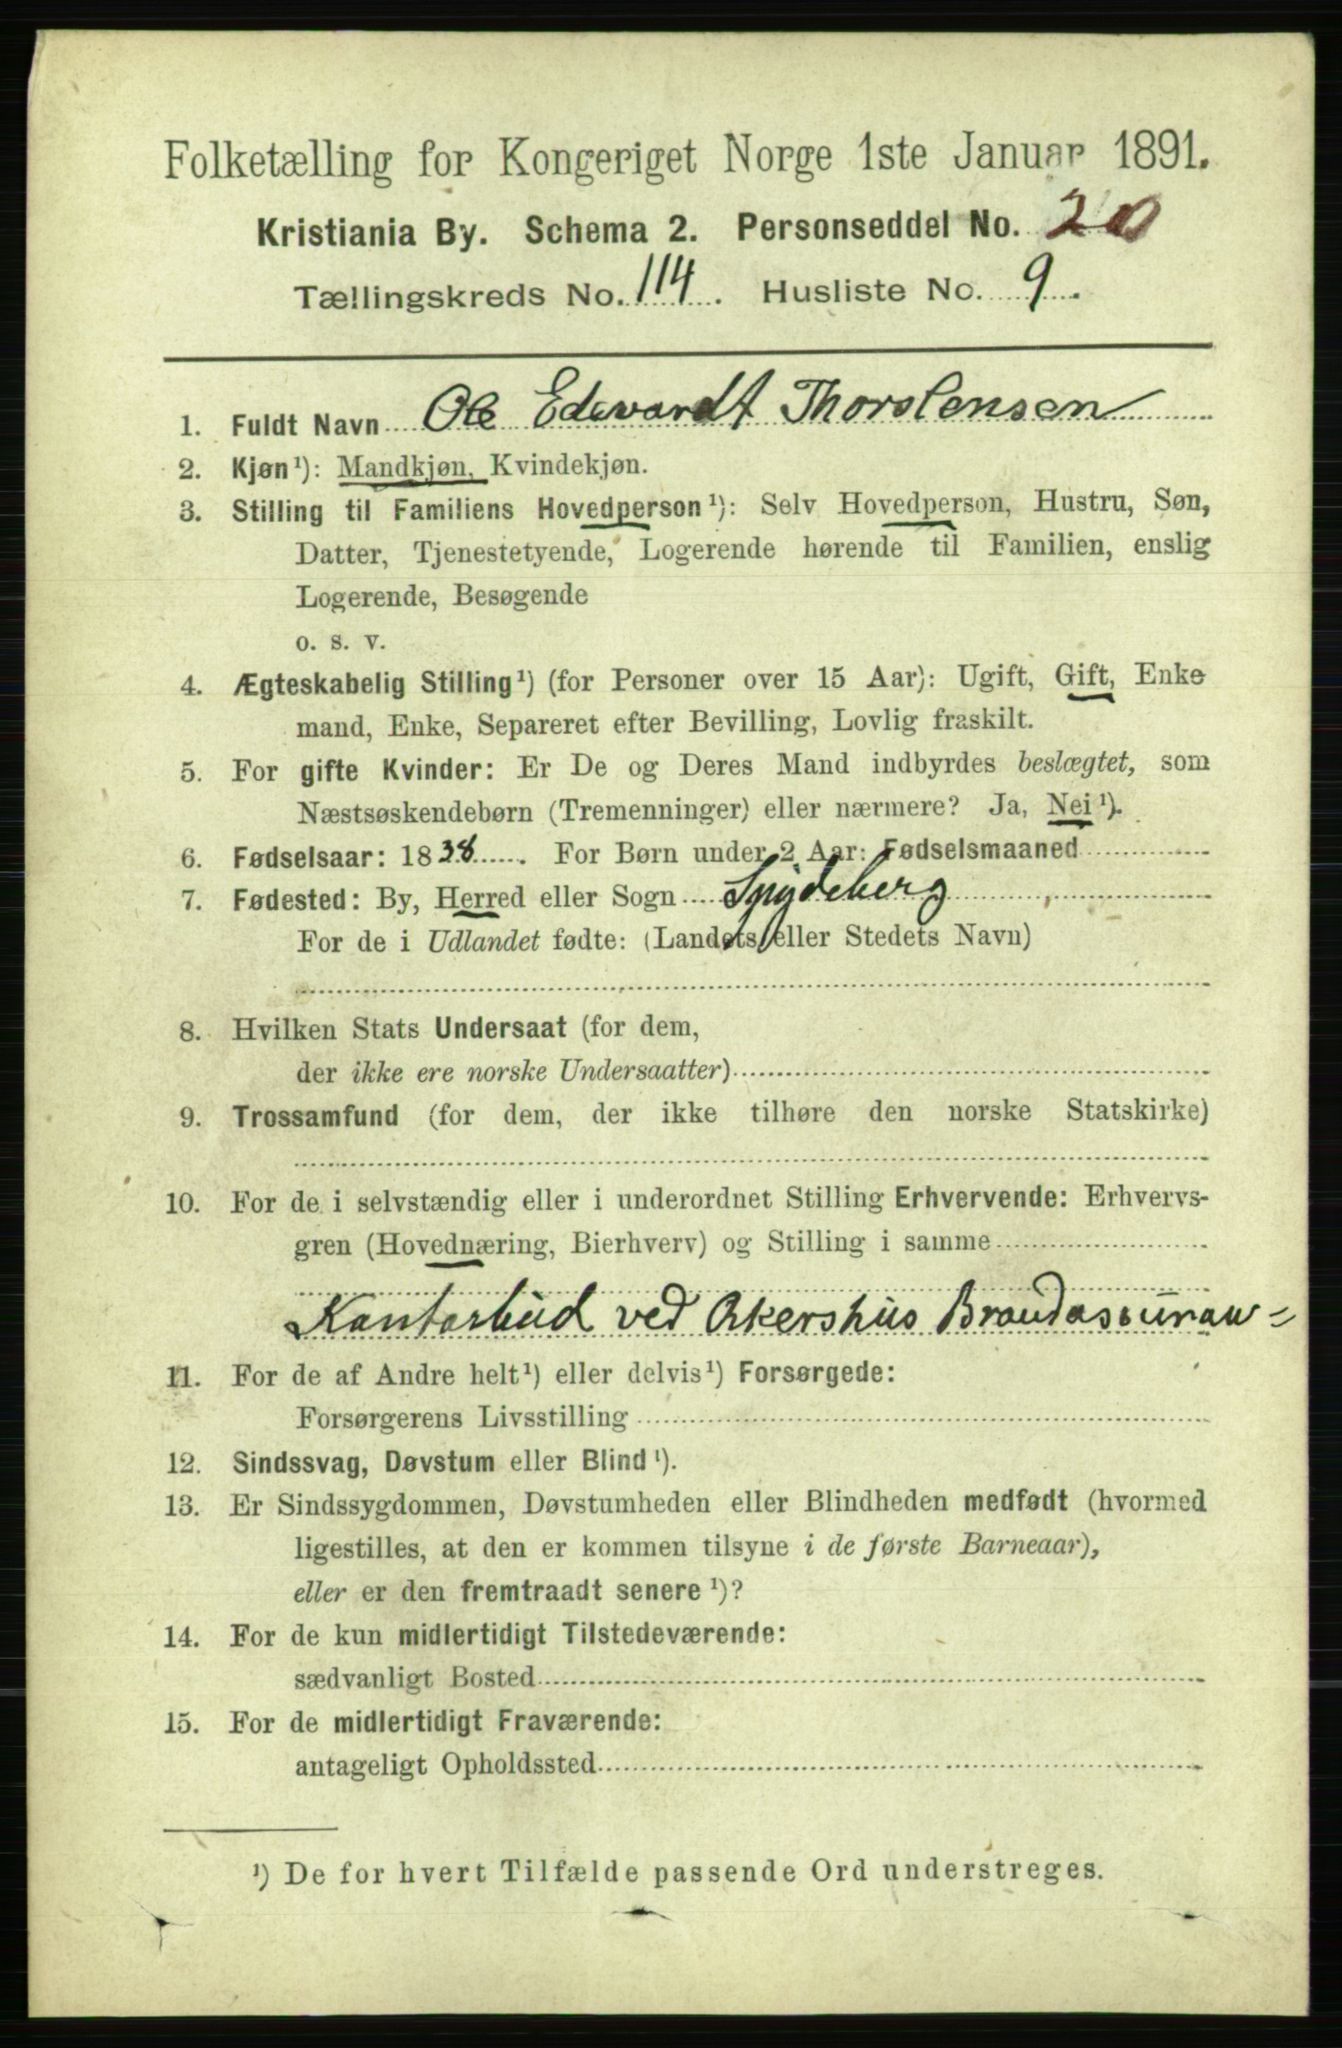 Folketælling for Kongeriget Norge 1ste Januar 1891.
Kristiania By. Schema 2. Personseddel No. 20
Tællingskreds No. 114. Husliste No. 9.
1. Fuldt Navn Ole Edevardt Thorstensen
2. Kjøn¹): Mandkjøn, Kvindekjøn.
3. Stilling til Familiens Hovedperson¹): Selv Hovedperson, Hustru, Søn,
Datter, Tjenestetyende, Logerende hørende til Familien, enslig
Logerende, Besøgende
o. s. v.
4. Ægteskabelig Stilling¹) (for Personer over 15 Aar): Ugift, Gift, Enke
mand, Enke, Separeret efter Bevilling, Lovlig fraskilt.
5. For gifte Kvinder: Er De og Deres Mand indbyrdes beslægtet, som
Næstsøskendebørn (Tremenninger) eller nærmere? Ja, Nei¹).
6. Fødselsaar: 1838. For Børn under 2 Aar: Fødselsmaaned
7. Fødested: By, Herred eller Sogn Spydeberg
For de i Udlandet fødte: (Landets eller Stedets Navn)
8. Hvilken Stats Undersaat (for dem,
der ikke ere norske Undersaatter)
9. Trossamfund (for dem, der ikke tilhøre den norske Statskirke)
10. For de i selvstændig eller i underordnet Stilling Erhvervende: Erhvervs-
gren (Hovednæring, Bierhverv) og Stilling i samme
Kontorbud ved Akershus Brandassuran=
11. For de af Andre helt¹) eller delvis¹) Forsørgede:
Forsørgerens Livsstilling
12. Sindssvag, Døvstum eller Blind¹).
13. Er Sindssygdommen, Døvstumheden eller Blindheden medfødt (hvormed
ligestilles, at den er kommen tilsyne i de første Barneaar),
eller er den fremtraadt senere¹)?
14. For de kun midlertidigt Tilstedeværende:
sædvanligt Bosted
15. For de midlertidigt Fraværende:
antageligt Opholdssted
¹) De for hvert Tilfælde passende Ord understreges.